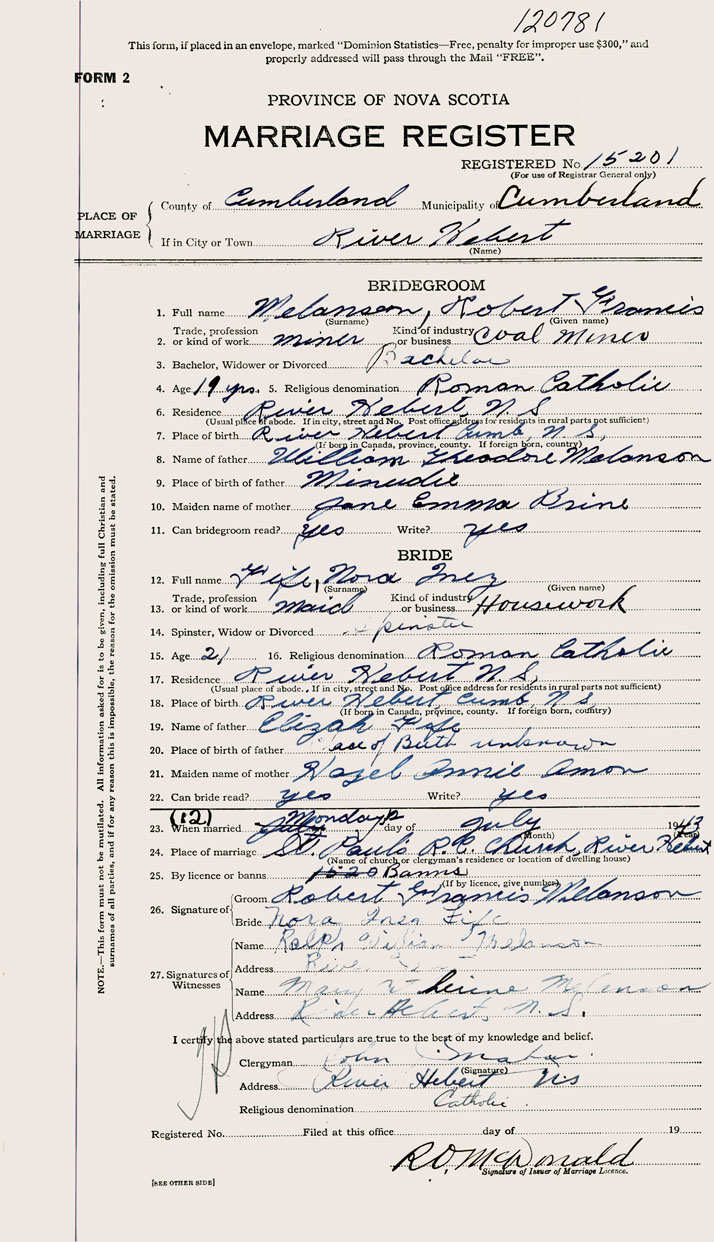 120781
This form, if placed in an envelope, marked "Dominion Statistics—Free, penalty for improper use $300," and
properly addressed will pass through the Mail "FREE".
FORM 2
PROVINCE OF NOVA SCOTIA
MARRIAGE REGISTER
REGISTERED No. 15201
(For use of Registrar General only)
PLACE OF MARRIAGE
County of Cumberland Municipality of Cumberland
If in City or Town River Hebert
(Name)
BRIDEGROOM
1. Full name Melanson, Robert Francis
(Surname) (Given name)
2. Trade, profession or kind of work miner Kind of industry or business Coal Mines
3. Bachelor, Widower or Divorced Bachelor
4. Age 19 yrs. 5. Religious denomination Roman Catholic
6. Residence River Hebert, N.S
(Usual place of abode. If in city, street and No. Post office address for residents in rural parts not sufficient)
7. Place of birth River Hebert Cumb, N.S,
(If born in Canada, province, county. If foreign born, country)
8. Name of father William Theodore Melanson
9. Place of birth of father Minudie
10. Maiden name of mother Jane Emma Brine
11. Can bridegroom read? yes Write? yes
BRIDE
12. Full name Fife, Nora Inez
(Surname) (Given name)
13. Trade, profession or kind of work maid Kind of industry or business Housework
14. Spinster, Widow or Divorced Spinster
15. Age 21 16. Religious denomination Roman Catholic
17. Residence River Hebert N.S,
(Usual place of abode. If in city, street and No. Post office address for residents in rural parts not sufficient)
18. Place of birth River Hebert Cumb, N.S,
(If born in Canada, province, county. If foreign born, country)
19. Name of father Elizah Fife
20. Place of birth of father Place of Birth unknown
21. Maiden name of mother Hazel Annie Amon
22. Can bride read? yes Write? yes
23. When married (12) Monday day of July 1943
(Month) (Year)
24. Place of marriage St. Paul's R.C. Church, River Hebert
(Name of church or clergyman's residence or location of dwelling house)
25. By licence or banns 1520 Banns
(If by licence, give number)
26. Signature of
Groom Robert Francis Melanson
Bride Nora Inez Fife
27. Signatures of Witnesses
Name Ralph William Melanson
Address River
Name Mary Melanson
Address River Hebert, N.S.
I certify the above stated particulars are true to the best of my knowledge and belief.
Clergyman John
(Signature)
Address River Hebert NS
Religious denomination Catholic
Registered No. Filed at this office day of 19
R D McDonald
Signature of Issuer of Marriage Licence.
[SEE OTHER SIDE]
NOTE.—This form must not be mutilated. All information asked for is to be given, including full Christian and
surnames of all parties, and if for any reason this is impossible, the reason for the omission must be stated.